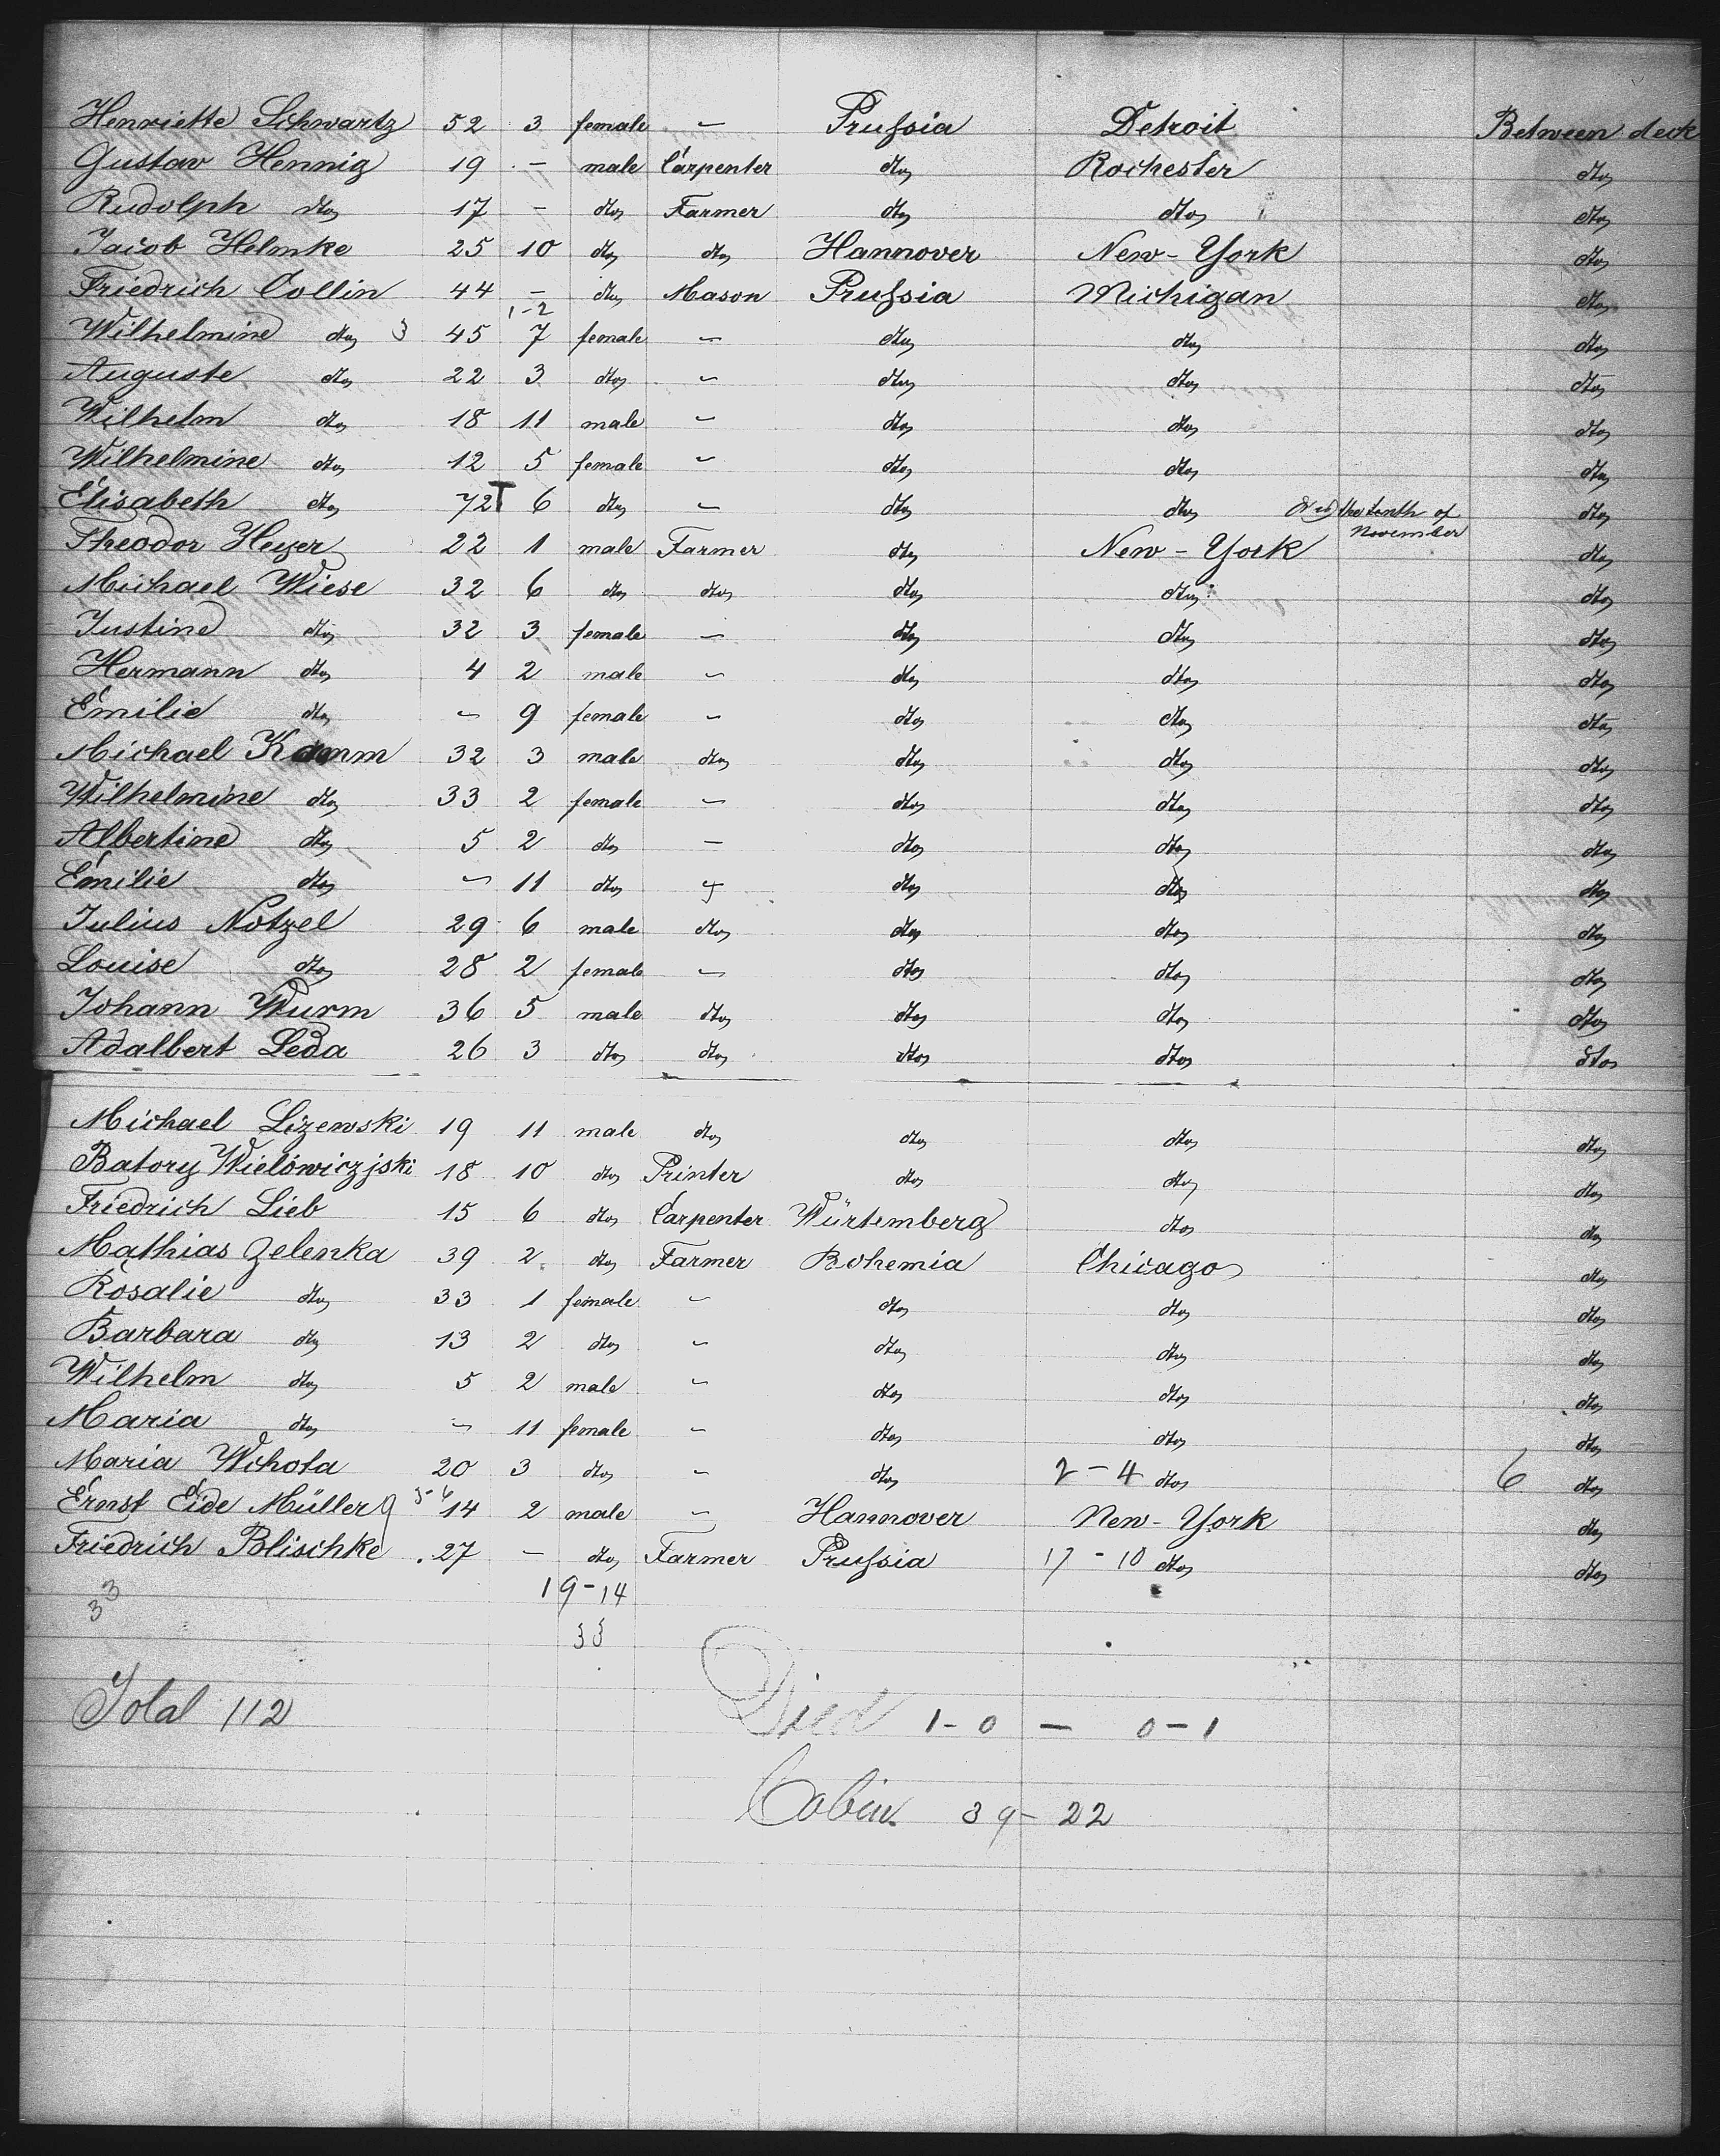 Henriette Schwartz 52 3 female - Prussia Detroit Between deck
Gustav Hennig 19 - male Carpenter dto Rochester dto
Rudolph dto 17 - dto Farmer dto dto dto
Jacob Helmke 25 10 dto dto Hannover New-York dto
Friedrich Collin 44 - dto Mason Prussia Michigan dto
1-2
Wilhelmine dto 3 45 7 female - dto dto dto
Auguste dto 22 3 dto - dto dto dto
Wilhelm dto 18 11 male - dto dto dto
Wilhelmine dto 12 5 female - dto dto dto
Elisabeth dto 72 T 6 dto - dto dto Died the tenth of November dto
Theodor Heyer 22 1 male Farmer dto New-York dto
Michael Wiese 32 6 dto dto dto dto dto
Justine dto 32 3 female - dto dto dto
Hermann dto 4 2 male - dto dto dto
Emilie dto - 9 female - dto dto dto
Michael Kamm 32 3 male dto dto dto dto
Wilhelmine dto 33 2 female - dto dto dto
Albertine dto 5 2 dto - dto dto dto
Emilie dto - 11 dto - dto dto dto
Julius Notzel 29 6 male dto dto dto dto
Louise dto 28 2 female - dto dto dto
Johann Wurm 36 5 male dto dto dto dto
Adalbert Leda 26 3 dto dto dto dto dto
Michael Lizewski 19 11 male dto dto dto dto
Batory Wielowiczjski 18 10 dto Printer dto dto dto
Friedrich Lieb 15 6 dto Carpenter Würtemberg dto dto
Mathias Zelenka 39 2 dto Farmer Bohemia Chicago dto
Rosalie dto 33 1 female - dto dto dto
Barbara dto 13 2 dto - dto dto dto
Wilhelm dto 5 2 male - dto dto dto
Maria dto - 11 female - dto dto dto
Maria Wchota 20 3 dto - dto 2-4 dto 6 dto
Ernst Eide Müller 9 3-6 14 2 male - Hannover New-York dto
Friedrich Blischke 27 - dto Farmer Prussia 17-10 dto dto
33 19-14
33
Total 112 Died 1-0 - 0-1
Cabin 39-22